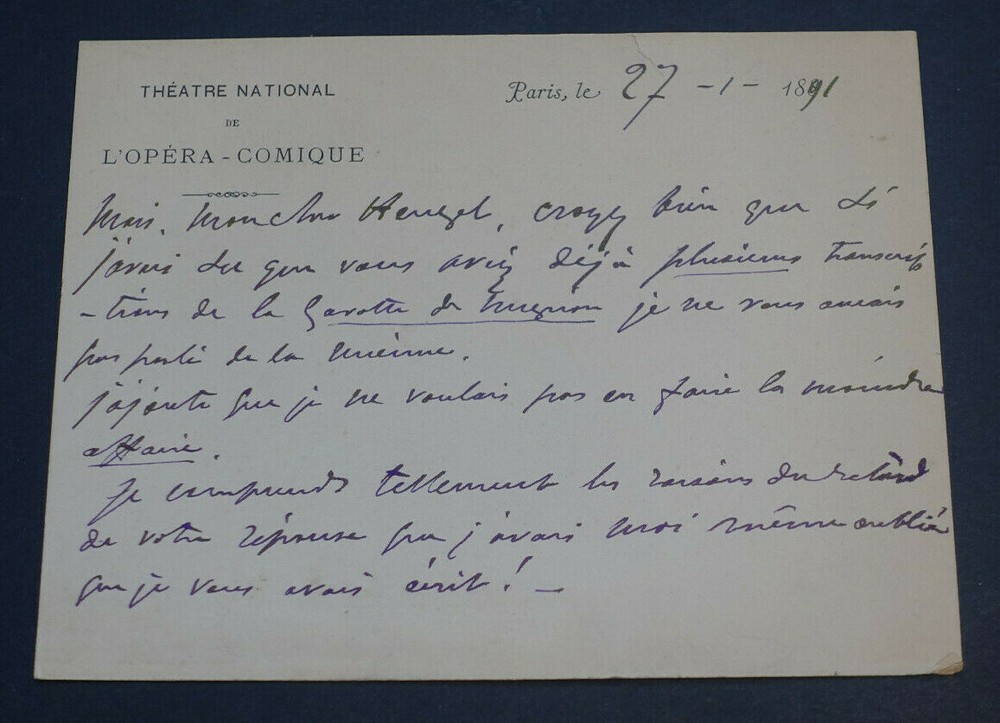 THÉATRE NATIONAL
DE
L'OPÉRA-COMIQUE
Paris, le 27 -1- 1891
Mais, mon cher Heugel, croyez bien que si
j'avais su que vous aviez déjà plusieurs transcrip
-tions de la Gavotte de Mignon je ne vous aurais
pas parlé de la mienne.
J'ajoute que je ne voulais pas en faire la moindre
affaire.
Je comprends tellement les raisons du retard
de votre réponse que j'avais moi même oublié
que je vous avais écrit! —